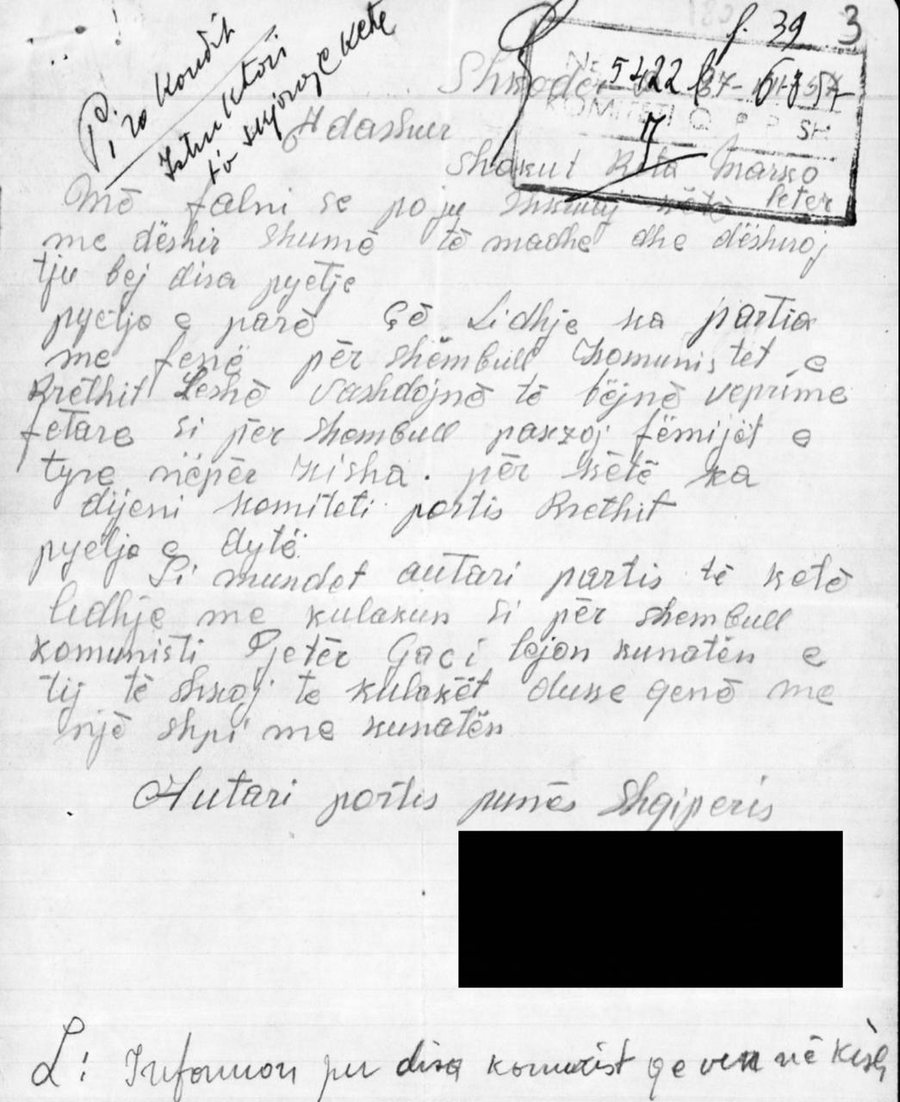 f. 39 3
Piro Kondit
Istruktori
të sqaroje kete
Nr 5422
KOMITETI Q P P SH
Shkodër
I dashur
Shokut Rita Marko
Peter
Më falni se po ju shkruaj këtë
me dëshir shumë të madhe dhe dëshroj
tju bej disa pyetje
pyetja e parë Çë Lidhje ka partia
me fenë për shëmbull Komunistët e
Rrethit Leshë vashdojnë të bëjnë veprime
fetare si për shembull paxzoj fëmijët e
tyre nëpër kisha. për këtë ka
dijeni komiteti partis Rrethit
pyetja e dytë
Si mundet autari partis të ketë
lidhje me kulakun si për shembull
komunisti Pjetër Gaci lejon kunatën e
tij të shkoj te kulakët duke qenë me
një shpi me kunatën
Autari partis punës Shqiperis
L: Informon per disa komunist qe ven në kish